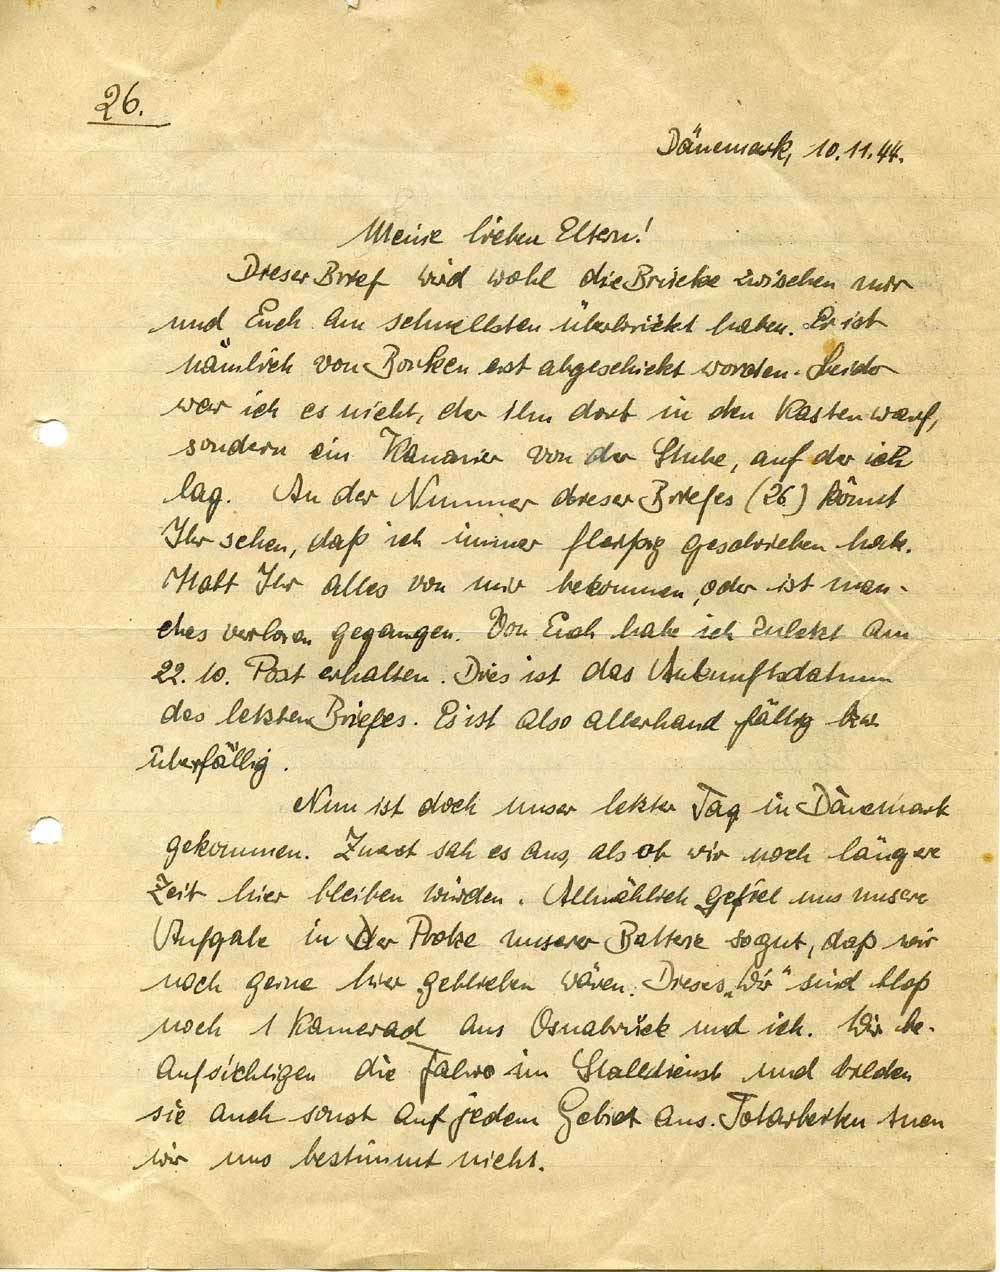 26.
Dänemark, 10.11.44.
Meine lieben Eltern!
Dieser Brief wird wohl die Brücke zwischen mir
und Euch am schnellsten überbrückt haben. Er ist
nämlich von Borken erst abgeschickt worden. Leider
war ich es nicht, der ihn dort in den Kasten warf,
sondern ein Kanonier von der Stube, auf der ich
lag. An der Nummer dieser Briefes (26) könnt
Ihr sehen, daß ich immer fleißig geschrieben habe.
Habt Ihr alles von mir bekommen, oder ist man-
ches verloren gegangen. Von Euch habe ich zuletzt am
22. 10. Post erhalten. Dies ist das Ankunftsdatum
des letzten Briefes. Es ist also allerhand fällig bzw.
überfällig.
Nun ist doch unser letzter Tag in Dänemark
gekommen. Zuerst sah es aus, als ob wir noch längere
Zeit hier bleiben würden. Allmählich gefiel uns unsere
Aufgabe in der Protze unserer Batterie so gut, daß wir
noch gerne hier geblieben wären. Dieses „Wir" sind bloß
noch 1 Kamerad aus Osnabrück und ich. Wir be-
aufsichtigen die Fahrer im Stalldienst und bilden
sie auch sonst auf jedem Gebiet aus. Totarbeiten tuen
wir uns bestimmt nicht.